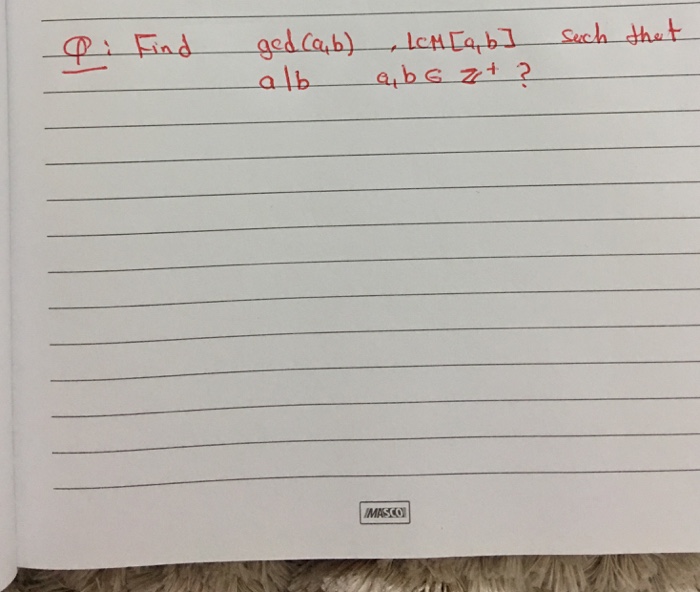 Q: Find gcd(a,b) , LCM[a,b] such that
a|b a,b ∈ Z⁺ ?
MASCO